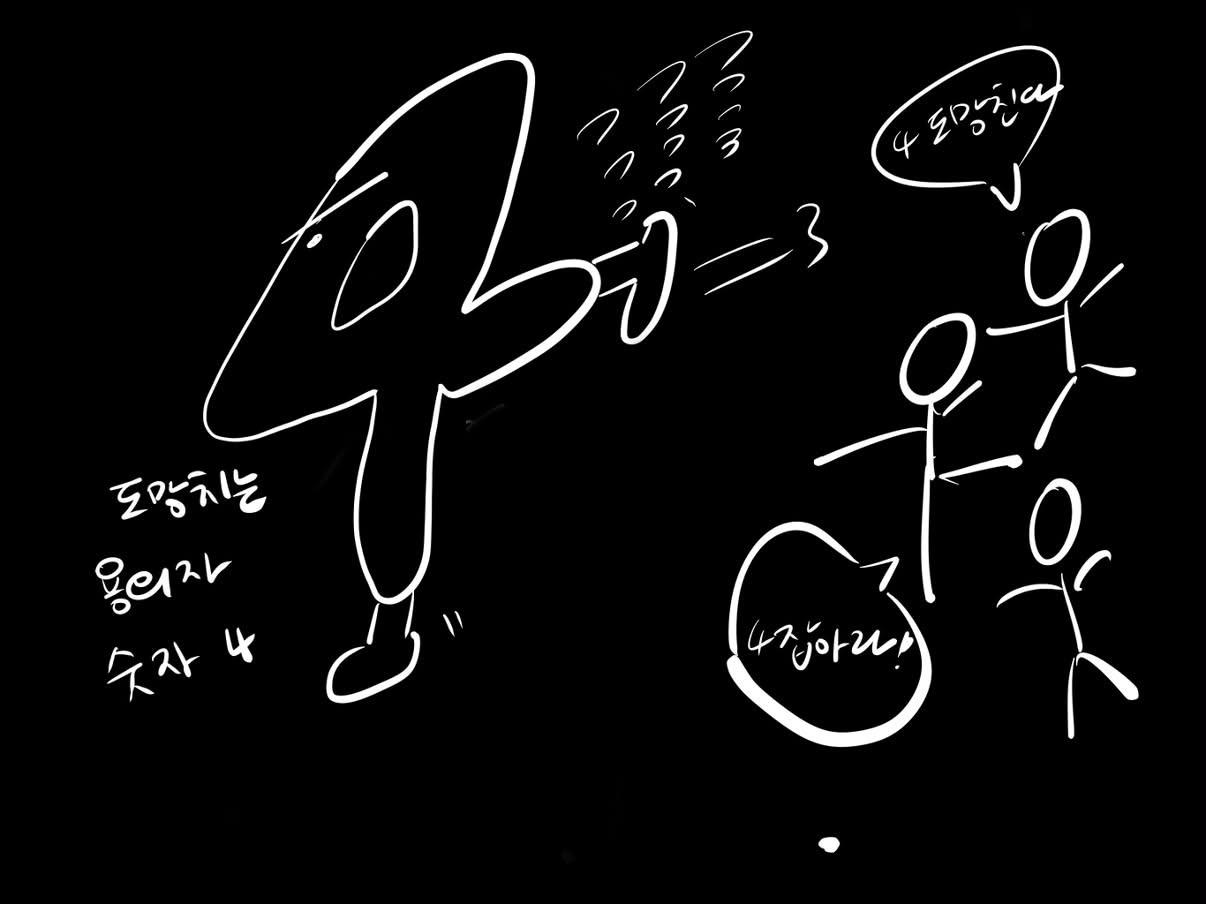 4 도망친다
=3
도망치는
용의자
숫자 4
4 잡아라!